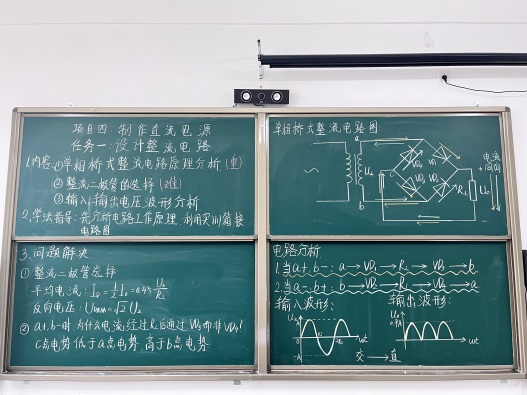 项目四:制作直流电源
任务一:设计整流电路
1.内容:①单相桥式整流电路原理分析(重)
②整流二极管的选择(难)
③输入输出电压波形分析
2.学法指导:先分析电路工作原理 利用实训箱接
电路图
3.问题解决
①整流二极管选择
平均电流:I_D=1/2 I_0=0.45 U_2/R_L
反向电压:U_{RM}=√2U_2
②a+,b-时,为什么电流经过R_L后通过VD_3而非VD_4?
C点电势低于a点电势,高于b点电势
单相桥式整流电路图:
a
b
U_2
R_L
U_0
电流
同向
+
-
电路分析
1.当a+ b-: a→VD_1→R_L→VD_3→b
2.当a- b+: b→VD_2→R_L→VD_4→a
输入波形: 输出波形:
U_2
ωt
-A
U_0
ωt
交→直